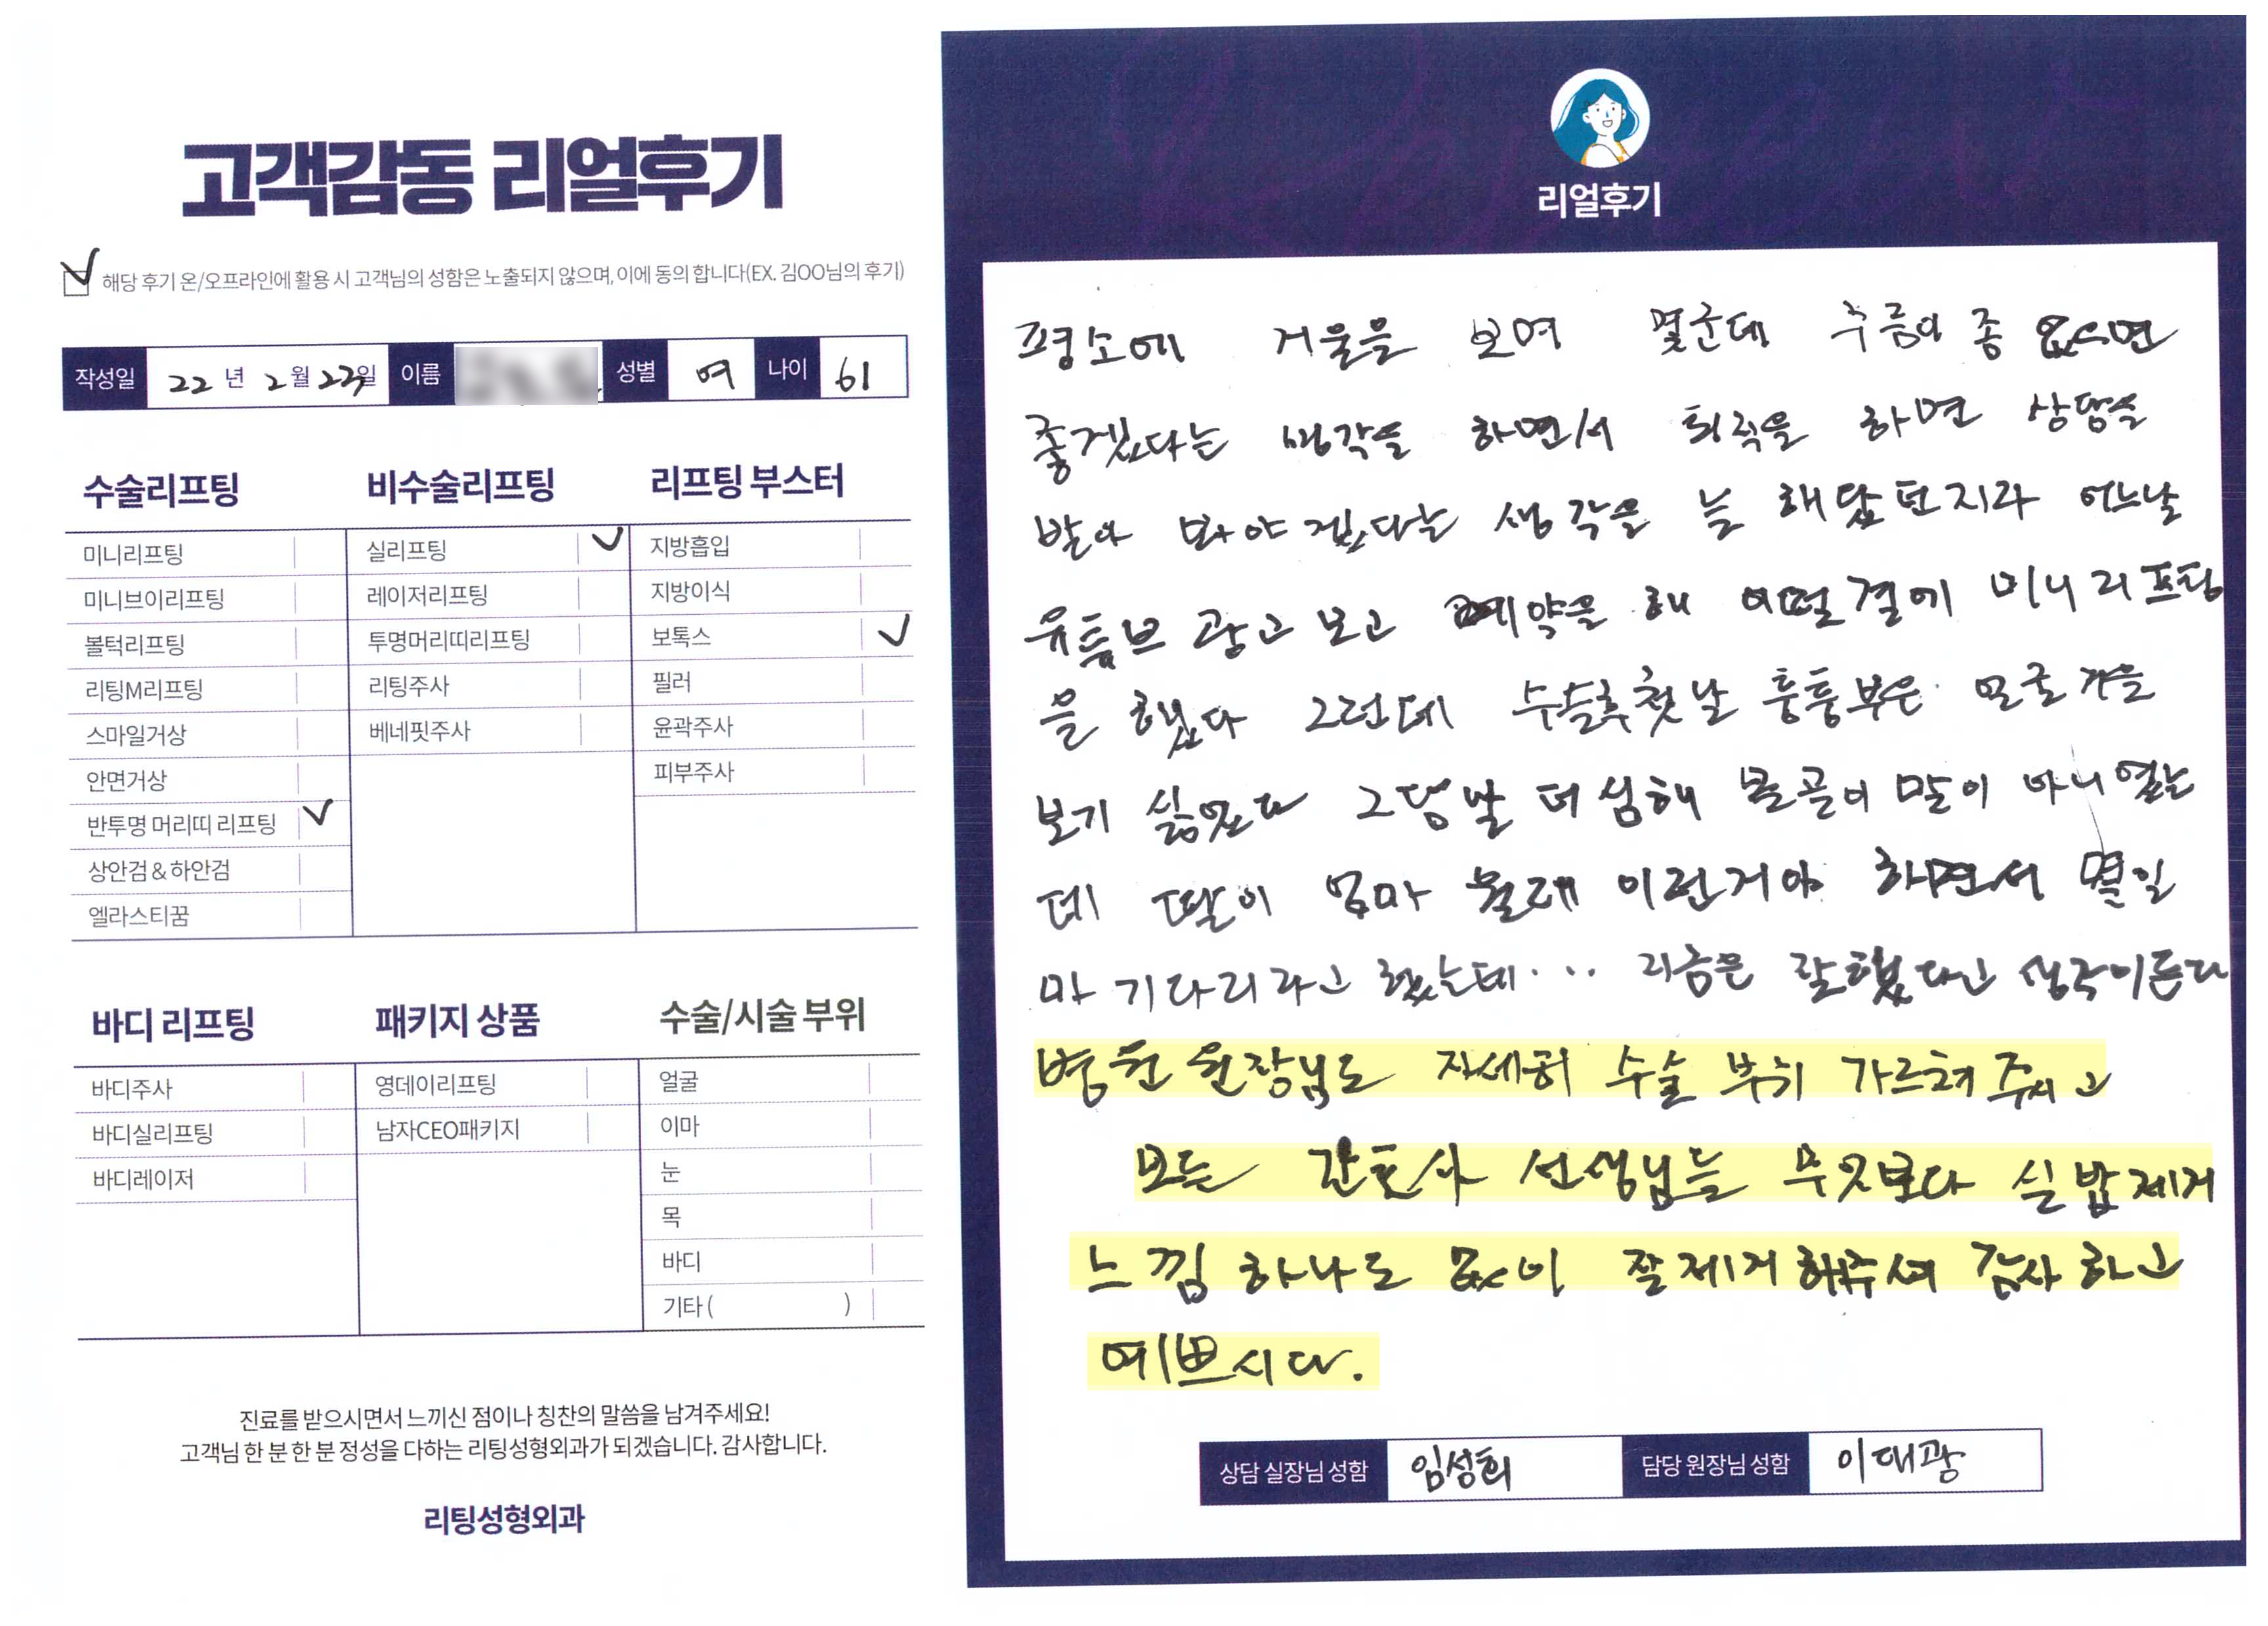 고객감동 리얼후기
해당 후기 온/오프라인에 활용 시 고객님의 성함은 노출되지 않으며, 이에 동의 합니다(EX. 김OO님의 후기)
작성일 22년 2월 23일 이름 성별 여 나이 61
수술리프팅
미니리프팅
미니브이리프팅
볼턱리프팅
리팅M리프팅
스마일거상
안면거상
반투명 머리띠 리프팅
상안검 & 하안검
엘라스티꿈
비수술리프팅
실리프팅
레이저리프팅
투명머리띠리프팅
리팅주사
베네핏주사
리프팅 부스터
지방흡입
지방이식
보톡스
필러
윤곽주사
피부주사
바디 리프팅
바디주사
바디실리프팅
바디레이저
패키지 상품
영데이리프팅
남자CEO패키지
수술/시술 부위
얼굴
이마
눈
목
바디
기타 ( )
진료를 받으시면서 느끼신 점이나 칭찬의 말씀을 남겨주세요!
고객님 한 분 한 분 정성을 다하는 리팅성형외과가 되겠습니다. 감사합니다.
리팅성형외과
리얼후기
평소에 거울을 보며 몇군데 주름이 좀 없으면
좋겠다는 생각을 하면서 퇴직을 하면 상담을
받아 봐야겠다는 생각을 늘 해왔던지라 어느날
유튜브 광고 보고 예약을 해 어떨결에 미니리프팅
을 했다 그런데 수술후 첫날 퉁퉁부은 얼굴 거울
보기 싫었다 그 담날 더 심해 몰골이 말이 아니였는
데 딸이 엄마 원래 이런거야 하면서 몇일
만 기다리라고 했는데... 지금은 잘했다고 생각이든다
병원 원장님도 자세히 수술 부위 가르쳐 주시고
모든 간호사 선생님들 무엇보다 실밥제거
느낌 하나도 없이 잘제거 해주셔 감사하고
예쁘시다.
상담 실장님 성함 임성희 담당 원장님 성함 이대광